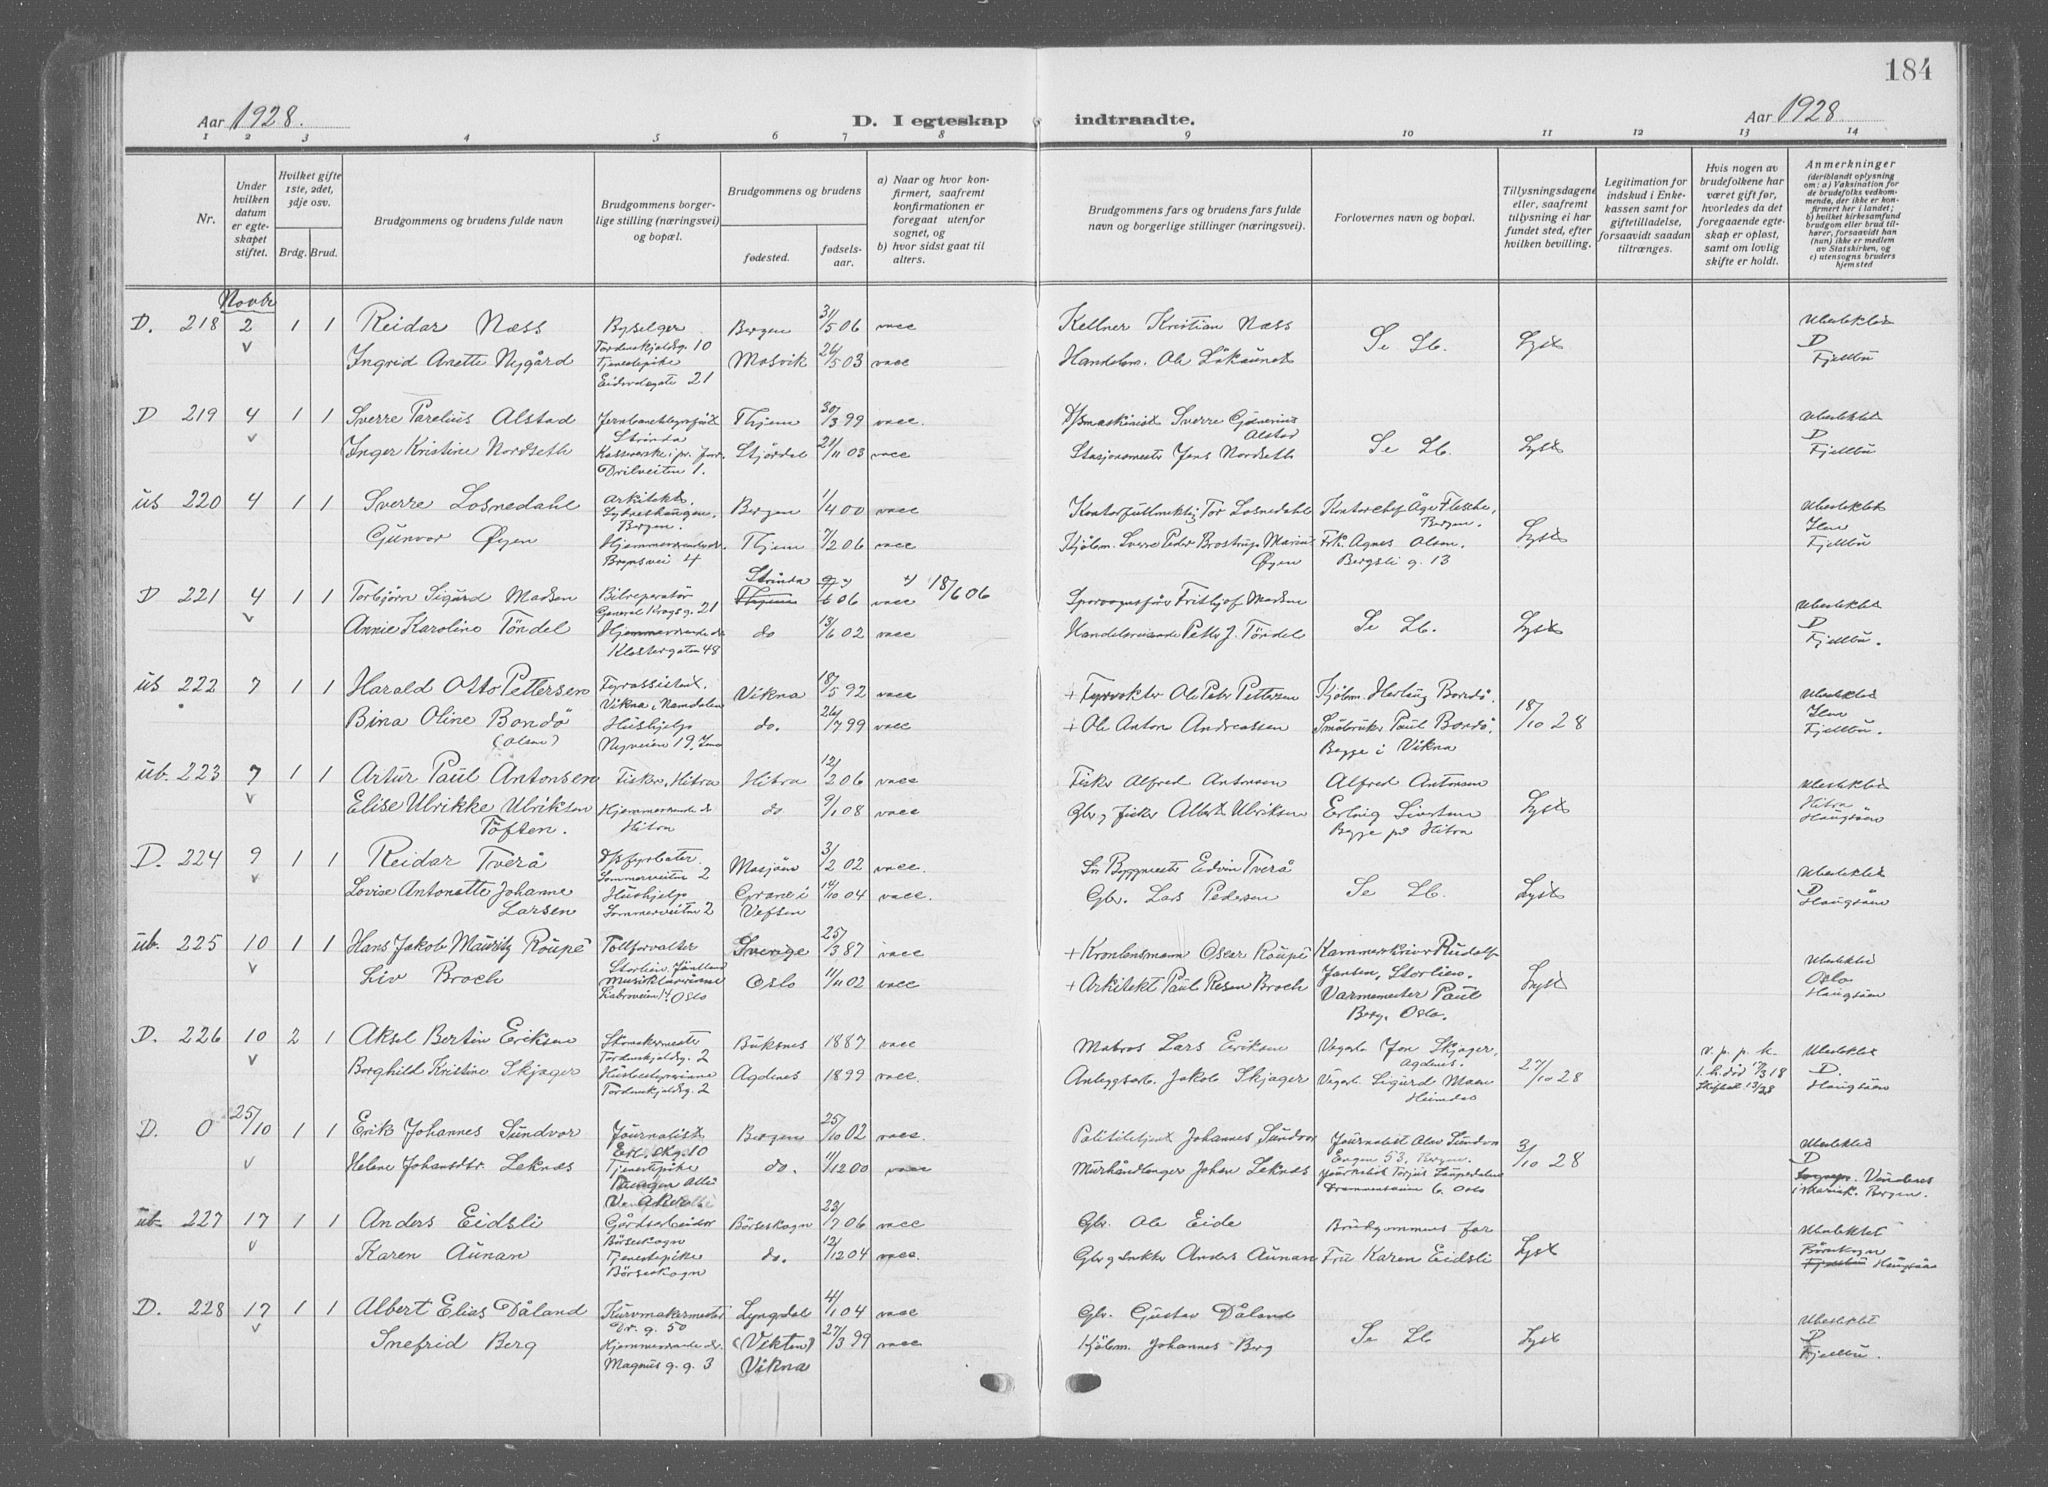 184
Aar 1928.
D. I egteskap indtraadte.
Aar 1928
1 2 3 4 5 6 7 8 9 10 11 12 13 14
Nr.
Under hvilken datum er egteskapet stiftet.
Hvilket gifte 1ste, 2det, 3dje osv.
Brdg. Brud.
Brudgommens og brudens fulde navn
Brudgommens borgerlige stilling (næringsvei) og bopæl.
Brudgommens og brudens
fødested.
fødselsaar.
a) Naar og hvor konfirmert, saafremt konfirmationen er foregaat utenfor sognet, og
b) hvor sidst gaat til alters.
Brudgommens fars og brudens fars fulde navn og borgerlige stillinger (næringsvei).
Forlovernes navn og bopæl.
Tillysningsdagene eller, saafremt tillysning ei har fundet sted, efter hvilken bevilling.
Legitimation for indskud i Enkekassen samt for giftetilladelse, forsaavidt saadan tiltrænges.
Hvis nogen av brudefolkene har været gift før, hvorledes da det foregaaende egteskap er opløst, samt om lovlig skifte er holdt.
Anmerkninger
(deriblandt oplysning om: a) Vaksination for de brudefolks vedkommende, der ikke er konfirmert her i landet; b) hvilket kirkesamfund brudgom eller brud tilhører, forsaavidt han (hun) ikke er medlem av Statskirken, og c) utensogns bruders hjemsted
Novbr
D. 218 2 1 1 Reidar Næss Byselger Bergen 31/5 06 vacc Kellner Kristian Næss Se Lb. Lyst Ubeslektet
Tordenskjoldsg. 10 D
Ingrid Anette Nygård Tjenestepike Mosvik 26/5 03 vacc Handelsm. Ole Løkaunet Fjellbu
Eidsvoldsgate 21
D 219 4 1 1 Sverre Parelius Alstad Thjem 30/3 99 vacc. Sverre Alstad Se Lb. Lyst Ubeslektet
Strinda D
Inger Kristine Nordseth Stjørdal 21/11 03 vacc Stasjonsmester Jens Nordseth Fjellbu
Drilveiten 1.
us 220 4 1 1 Sverre Losnedahl Arkitekt. Bergen 1/4 00 vacc Kontorfullmektig Tor Losnedahl Kontorchef Åge Flesche, Bergen. Lyst Ubeslektet
Bergen. Ilen
Gunvor Øyen Hjemmeværende ds. Thjem 7/2 06 vacc Kjøbm. Sverre Peder Brostrup Marius Øyen Frk. Agnes Olsen. Fjellbu
Brynsvei 4 Bergsli g. 13
D 221 4 1 1 Torbjørn Sigurd Madsen Bilreparatør Strinda Thjem 6 06 vacc 18/6 06 Sporvognsfører Frithjof Madsen Se Lb. Lyst Ubeslektet
General Krags g. 21 D
Annie Karoline Tøndel Hjemmeværende ds do 13/6 02 vacc Handelsreisende Petter J. Tøndel Fjellbu.
Klostergaten 48
us 222 7 1 1 Harald Otto Pettersen Fyrassistent. Vikna 18/5 92 vacc + Fyrvokter Ole Petr Pettersen Kjøbm. Herlaug Bondø Ubeslektet
Vikna, Namdalen Ilen
Bina Oline Bondø Hushjelp do. 26/7 99 vacc + Ole Anton Andreassen Småbruker Paul Bondø. 18/10 28 Fjellbu.
(Olsen) Nyveien 19. Begge i Vikna
ub. 223 7 1 1 Artur Paul Antonsen Fisker, Hitra Hitra 12/2 06 vacc Fisker Alfred Antonsen Alfred Antonsen Ubeslektet
Elise Ulrikke Ulriksen Tøften. Hjemmeværende ds Hitra do 9/1 08 vacc Gbr. og fisker Albert Ulriksen Erling Sivertsen Lyst Hitra
Begge på Hitra Haugsåen
D. 224 9 1 1 Reidar Tverå D/S fyrbøter. Mosjøen 3/2 02 vacc. Byggmester Edvin Tverå Ubeslektet
Sommerveiten 2 D
Lovise Antonette Johanne Larsen Hushjelp Grane i Vefsen 14/10 04 vacc. Gbr. Lars Pedersen Se Lb. Lyst Haugsåen
Sommerveiten 2
ub. 225 10 1 1 Hans Jakob Mauritz Roupé Tollforvalter Sverige 25/3 87 vacc + Kronlensmann Oscar Roupé Kammerskriver Rudolf Jansen, Storlien. Ubeslektet
Storlien, Jämtland Oslo
Liv Broch Musiklærerinne Oslo 11/11 02 vacc + Arkitekt Paul Resen Broch Varmemester Paul Berg, Oslo. Lyst Haugsåen
14. Oslo
D. 226 10 2 1 Aksel Bertin Eriksen Skomakermester Buksnes 1887 vacc Matros Lars Eriksen Vegarb. Jon Skjager, Agdenes. v. p. p. h. Ubeslektet
Tordenskjoldsg. 2 D.
Borghild Kristine Skjager Husbestyrerinne Agdenes 1899 vacc. Anleggsarb. Jakob Skjager Vegarb. Sigurd Moen Heimdal 27/10 28 1. h. død 7/3 18 Haugsåen
Tordenskjoldsg. 2 Skifteatt 13/28
D. 0 25/10 1 1 Erik Johannes Sundvor Journalist Bergen 25/10 02 vacc. Politibetjent Johannes Sundvor Journalist Olav Sundvor Engen 53, Bergen. 3/10 28 Ubeslektet
Erl. Skg. 10 D
Helene Johansdtr. Leknes Tjenestepike do. 11/12 00 vacc Murhåndlanger Johan Leknes Journalist Torjus Drammensveien 6. Oslo
i Mariak. Bergen.
ub. 227 17 1 1 Anders Eidsli Gårdsarbeider Børseskogn 23/7 06 vacc Gbr. Ole Eide Brudgommens far Ubeslektet
Børseskogn Børseskogn
Karen Aunan Tjenestepike do. 12/12 04 vacc. Gbr og Anders Aunan Fru Karen Eidsli Lyst Fjellbu Haugsåen
Børseskogn
D. 228 17 1 1 Albert Elias Dåland Kurvmakermester Lyngdal 4/1 04 vacc Gbr. Gustav Dåland Ubeslektet
Dr. g. 50 D
Snefrid Berg Hjemmeværende ds. (Vikten) Vikna 27/3 99 vacc Kjøbm. Johannes Berg Se Lb Lyst Fjellbu.
Magnus g. g. 3